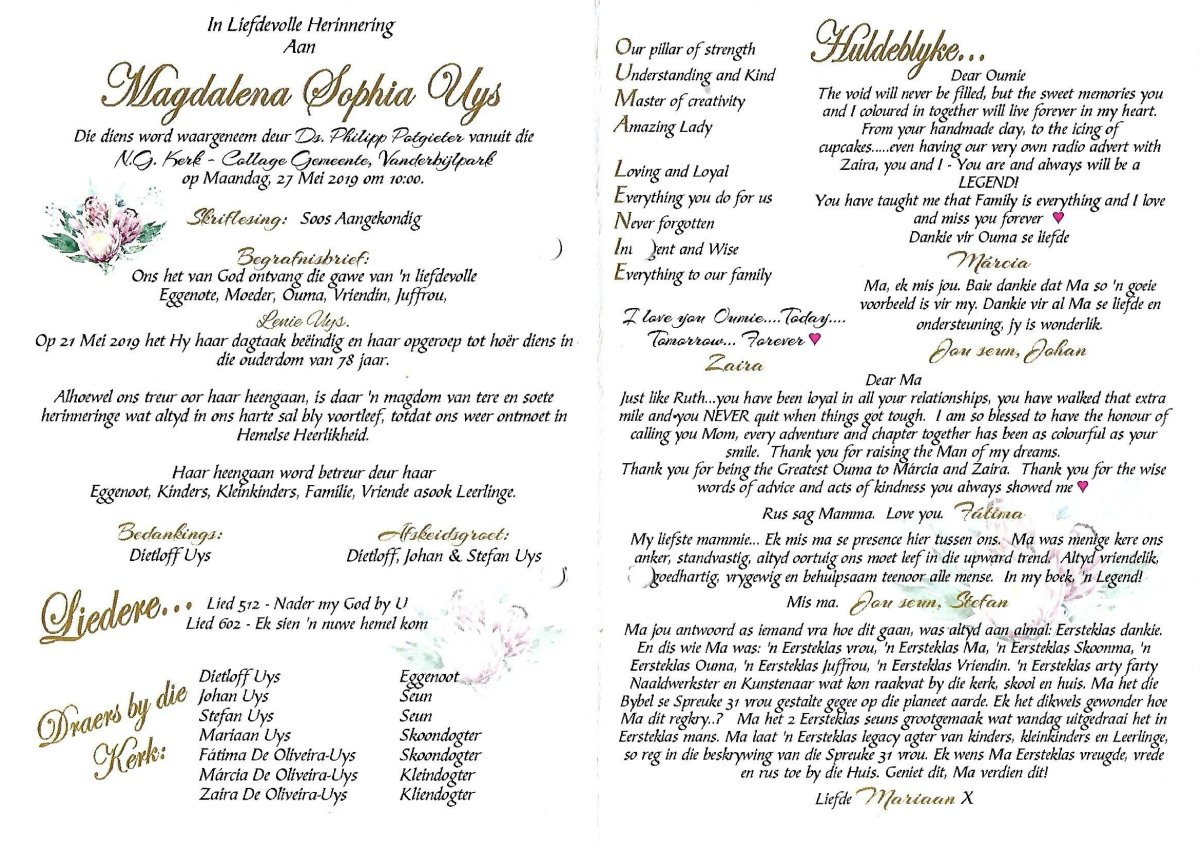 In Liefdevolle Herinnering
Aan
Magdalena Sophia Uys
Die diens word waargeneem deur Ds. Philipp Potgieter vanuit die
N.G. Kerk - Collage Gemeente, Vanderbijlpark
op Maandag, 27 Mei 2019 om 10:00.
Skriflesing: Soos Aangekondig
Begrafnisbrief:
Ons het van God ontvang die gawe van 'n liefdevolle
Eggenote, Moeder, Ouma, Vriendin, Juffrou,
Lenie Uys.
Op 21 Mei 2019 het Hy haar dagtaak beëindig en haar opgeroep tot hoër diens in
die ouderdom van 78 jaar.
Alhoewel ons treur oor haar heengaan, is daar 'n magdom van tere en soete
herinneringe wat altyd in ons harte sal bly voortleef, totdat ons weer ontmoet in
Hemelse Heerlikheid.
Haar heengaan word betreur deur haar
Eggenoot, Kinders, Kleinkinders, Familie, Vriende asook Leerlinge.
Bedankings:
Dietloff Uys
Afskeidsgroet:
Dietloff, Johan & Stefan Uys
Liedere...
Lied 512 - Nader my God by U
Lied 602 - Ek sien 'n nuwe hemel kom
Draers by die
Kerk:
Dietloff Uys Eggenoot
Johan Uys Seun
Stefan Uys Seun
Mariaan Uys Skoondogter
Fátima De Oliveira-Uys Skoondogter
Márcia De Oliveira-Uys Kleindogter
Zaíra De Oliveira-Uys Kliendogter
Our pillar of strength
Understanding and Kind
Master of creativity
Amazing Lady
Loving and Loyal
Everything you do for us
Never forgotten
and Wise
Everything to our family
I love you Oumie....Today....
Tomorrow... Forever
Zaíra
Huldeblyke...
Dear Oumie
The void will never be filled, but the sweet memories you
and I coloured in together will live forever in my heart.
From your handmade day, to the icing of
cupcakes.....even having our very own radio advert with
Zaíra, you and I - You are and always will be a
LEGEND!
You have taught me that Family is everything and I love
and miss you forever
Dankie vir Ouma se liefde
Márcia
Ma, ek mis jou. Baie dankie dat Ma so 'n goeie
voorbeeld is vir my. Dankie vir al Ma se liefde en
ondersteuning, jy is wonderlik.
Jou seun, Johan
Dear Ma
Just like Ruth...you have been loyal in all your relationships, you have walked that extra
mile and you NEVER quit when things got tough. I am so blessed to have the honour of
calling you Mom, every adventure and chapter together has been as colourful as your
smile. Thank you for raising the Man of my dreams.
Thank you for being the Greatest Ouma to Márcia and Zaíra. Thank you for the wise
words of advice and acts of kindness you always showed me
Rus sag Mamma. Love you. Fátima
My liefste mammie... Ek mis ma se presence hier tussen ons. Ma was menige kere ons
anker, standvastig, altyd oortuig ons moet leef in die upward trend. Altyd vriendelik,
goedhartig, vrygewig en behulpsaam teenoor alle mense. In my boek, 'n Legend!
Mis ma. Jou seun, Stefan
Ma jou antwoord as iemand vra hoe dit gaan, was altyd aan almal: Eersteklas dankie.
En dis wie Ma was: 'n Eersteklas vrou, 'n Eersteklas Ma, 'n Eersteklas Skoonma, 'n
Eersteklas Ouma, 'n Eersteklas Juffrou, 'n Eersteklas Vriendin. 'n Eersteklas arty farty
Naaldwerkster en Kunstenaar wat kon raakvat by die kerk, skool en huis. Ma het die
Bybel se Spreuke 31 vrou gestalte gegee op die planeet aarde. Ek het dikwels gewonder hoe
Ma dit regkry..? Ma het 2 Eersteklas seuns grootgemaak wat vandag uitgedraai het in
Eersteklas mans. Ma laat 'n Eersteklas legacy agter van kinders, kleinkinders en Leerlinge,
so reg in die beskrywing van die Spreuke 31 vrou. Ek wens Ma Eersteklas vreugde, vrede
en rus toe by die Huis. Geniet dit, Ma verdien dit!
Liefde Mariaan X